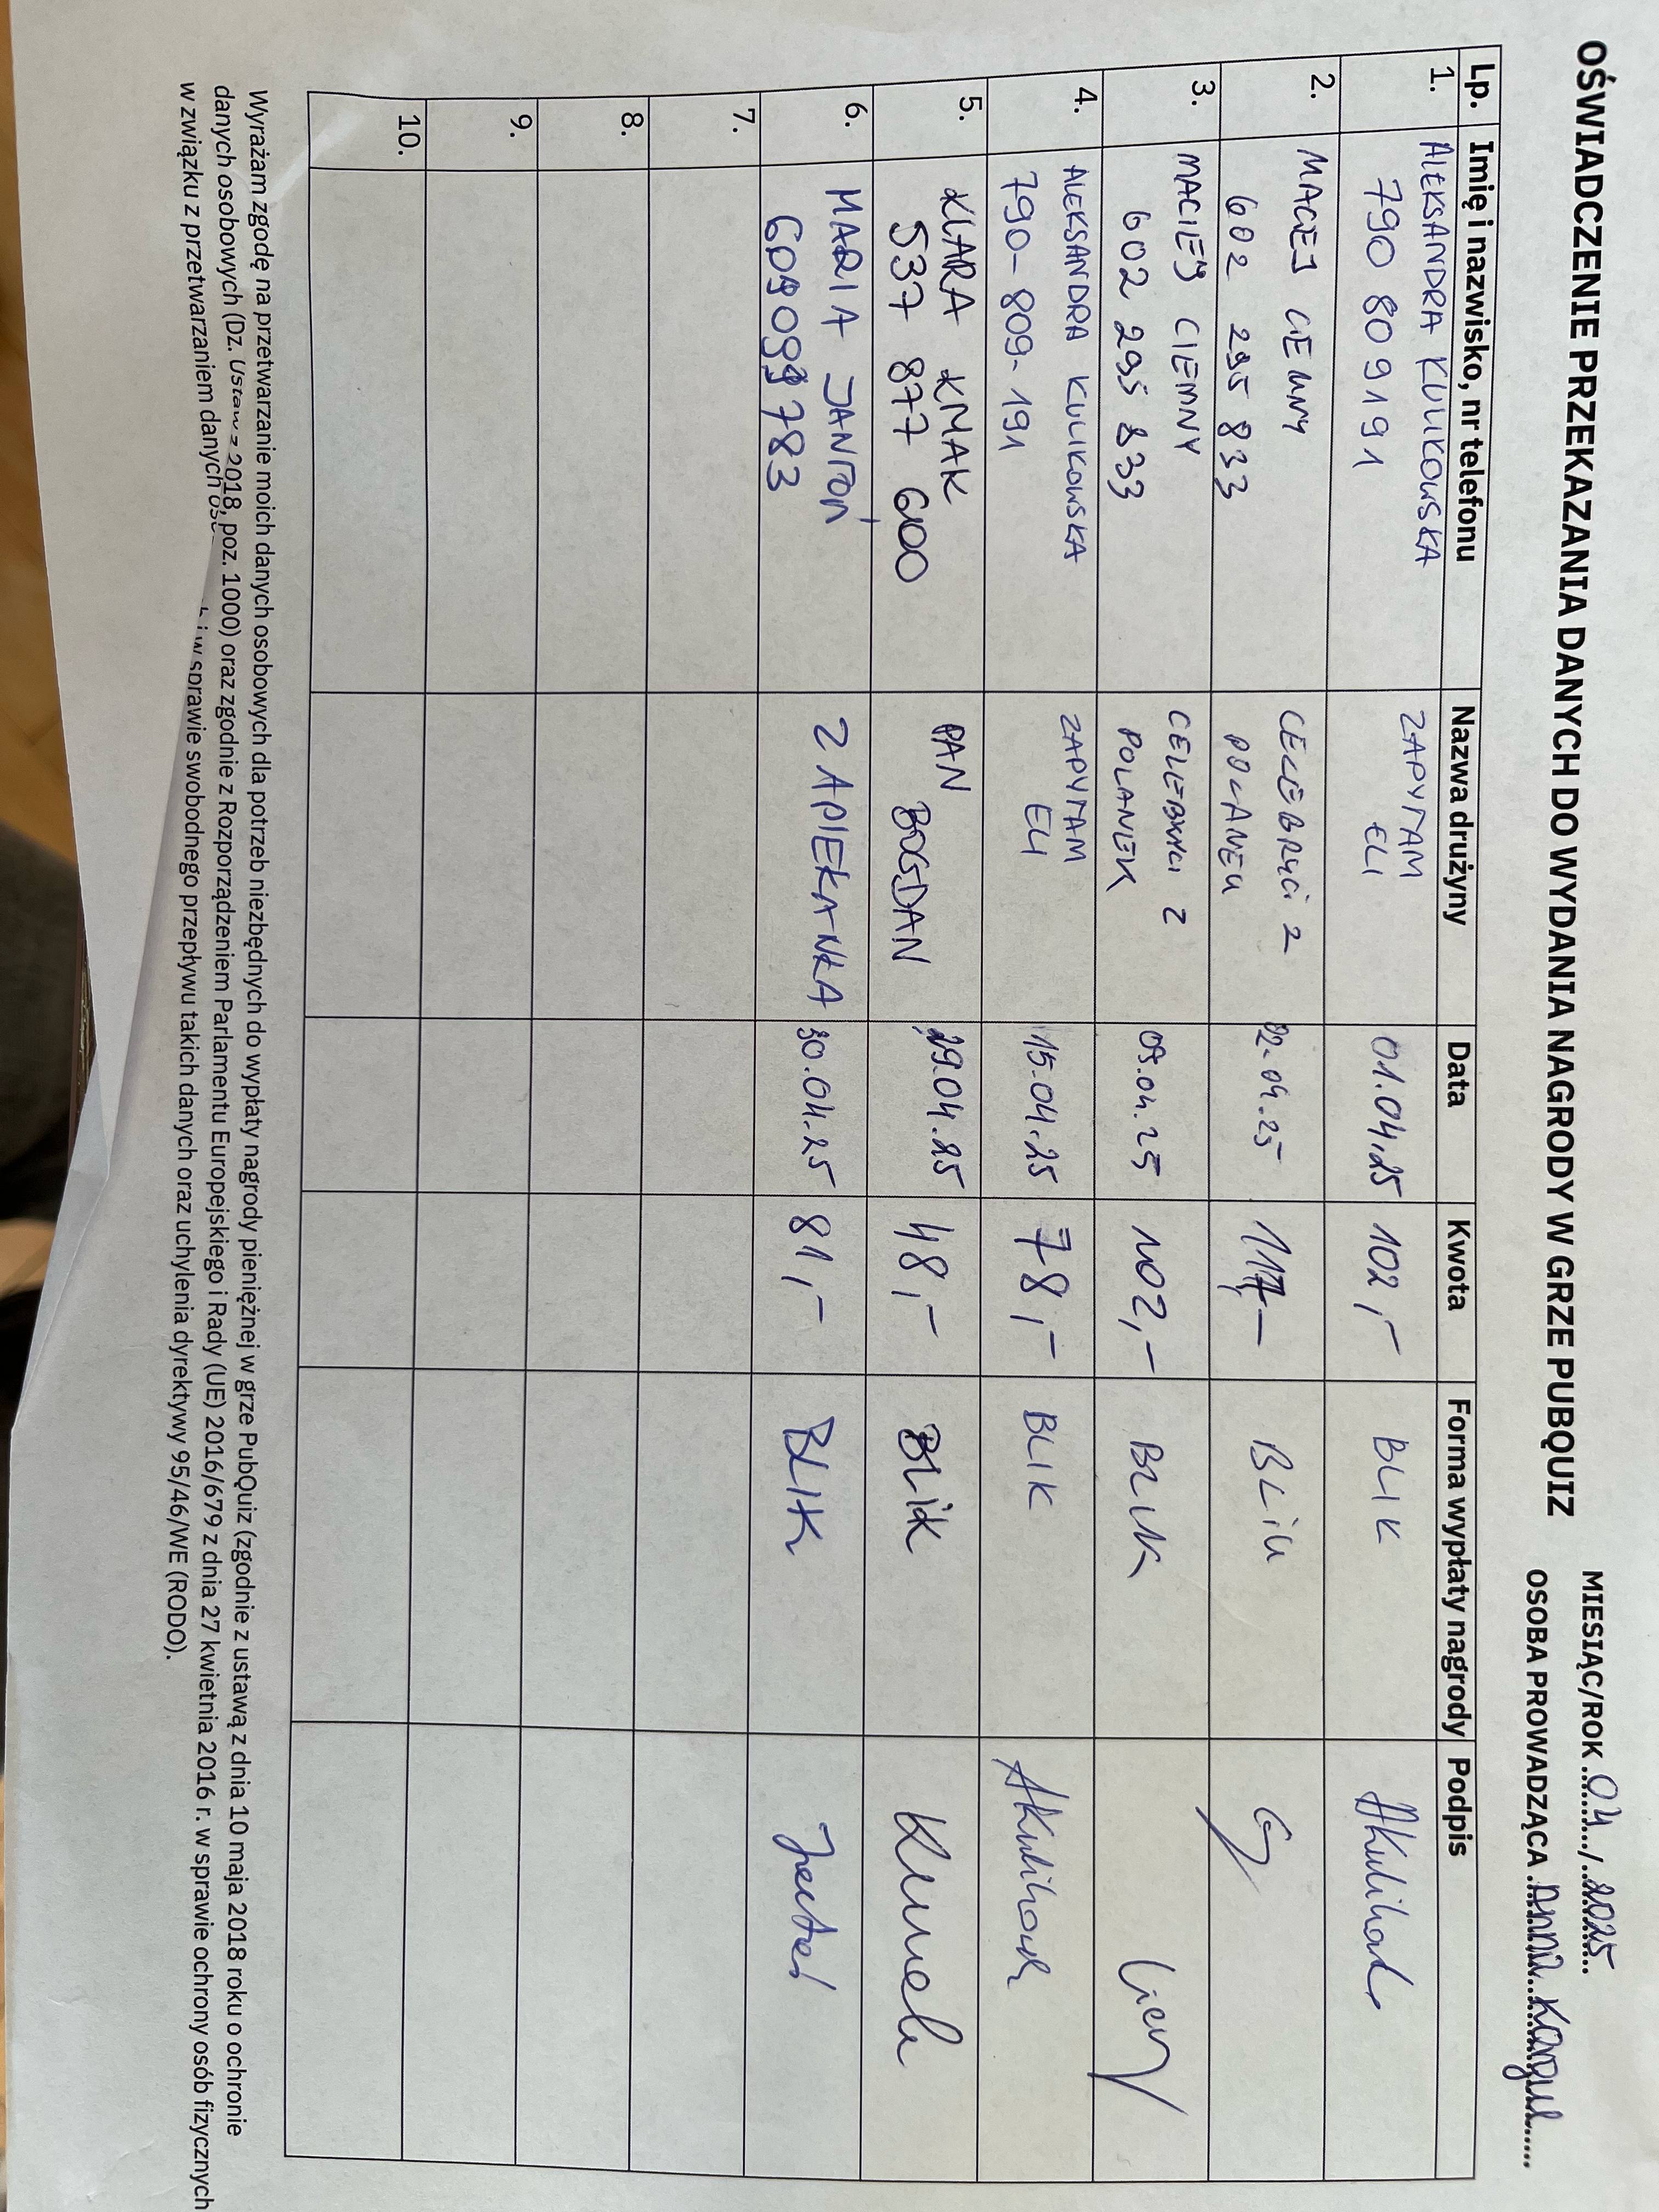 OŚWIADCZENIE PRZEKAZANIA DANYCH DO WYDANIA NAGRODY W GRZE PUBQUIZ
MIESIĄC/ROK 04 / 2025
OSOBA PROWADZĄCA Anna
Lp. Imię i nazwisko, nr telefonu Nazwa drużyny Data Kwota Forma wypłaty nagrody Podpis
1. ALEKSANDRA KULIKOWSKA ZAPYTAM 01.04.25 102,- BLIK
790 809191 ELI
2. MACIEJ CIEMNY CELEBRYCI Z 02.04.25 117,- BLIK
602 295 833 POLANEK
3. MACIEJ CIEMNY CELEBRYCI Z 09.04.25 102,- BLIK
602 295 833 POLANEK
4. ALEKSANDRA KULIKOWSKA ZAPYTAM 15.04.25 78,- BLIK
790-809-191 ELI
5. KLARA KMAK PAN 29.04.25 48,- BLiK
537 877 600 BOGDAN
6. MARIA JANTOŃ ZAPIEKANKA 30.04.25 81,- BLIK
609099783
7.
8.
9.
10.
Wyrażam zgodę na przetwarzanie moich danych osobowych dla potrzeb niezbędnych do wypłaty nagrody pieniężnej w grze PubQuiz (zgodnie z ustawą z dnia 10 maja 2018 roku o ochronie
danych osobowych (Dz. Ustaw z 2018, poz. 1000) oraz zgodnie z Rozporządzeniem Parlamentu Europejskiego i Rady (UE) 2016/679 z dnia 27 kwietnia 2016 r. w sprawie ochrony osób fizycznych
w związku z przetwarzaniem danych i w sprawie swobodnego przepływu takich danych oraz uchylenia dyrektywy 95/46/WE (RODO).